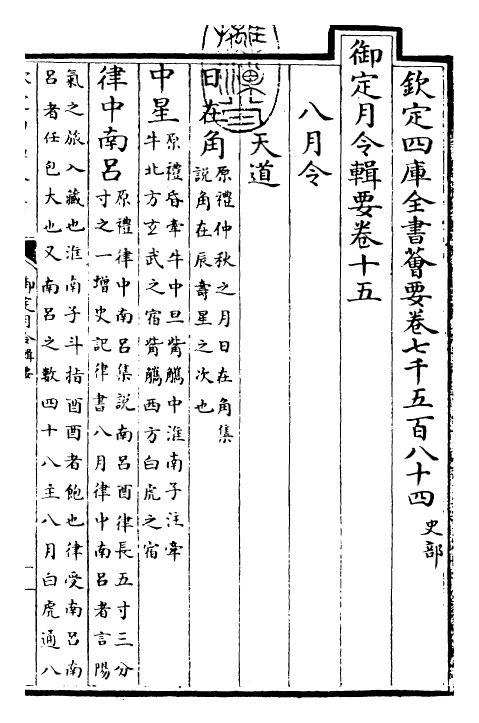 欽定四庫全書薈要卷七千五百八十四 史部
御定月令輯要卷十五
八月令
天道
日在角 原禮仲秋之月日在角集
說角在辰壽星之次也
中星 原禮昏牽牛中旦觜觿中淮南子注牽
牛北方玄武之宿觜觿西方白虎之宿
律中南呂 原禮律中南呂集說南呂酉律長五寸三分
寸之一增史記律書八月律中南呂者言陽
氣之旅入藏也淮南子斗指酉酉者飽也律受南呂南
呂者任包大也又南呂之數四十八主八月白虎通八
御定月令輯要